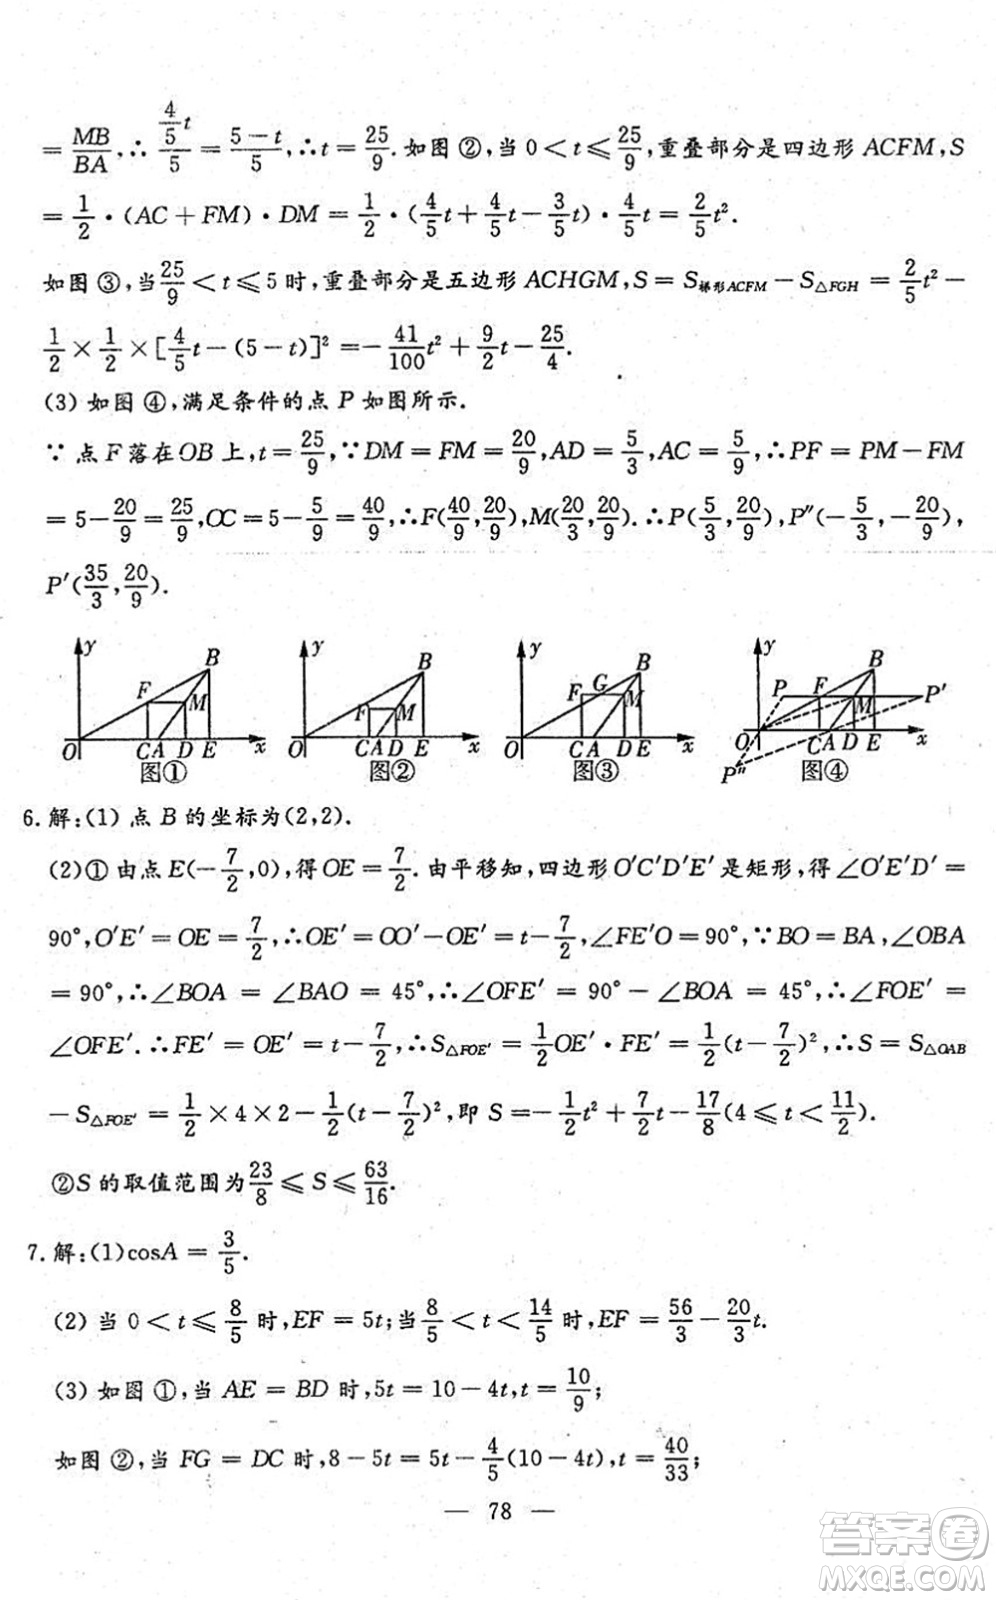 =MB/BA,∴(4/5)t/5=(5-t)/5,∴t=25/9.如图②,当0<t≤25/9,重叠部分是四边形ACFM,S
=1/2·(AC+FM)·DM=1/2·(4/5t+4/5t-3/5t)·4/5t=2/5t².
如图③,当25/9<t≤5时,重叠部分是五边形ACHGM,S=S梯形ACFM-S△FGH=2/5t²-
1/2×1/2×[4/5t-(5-t)]²=-41/100t²+9/2t-25/4.
(3)如图④,满足条件的点P如图所示.
∵点F落在OB上,t=25/9,∵DM=FM=20/9,AD=5/3,AC=5/9,∴PF=PM-FM
=5-20/9=25/9,OC=5-5/9=40/9,∴F(40/9,20/9),M(20/3,20/9).∴P(5/3,20/9),P″(-5/3,-20/9),
P′(35/3,20/9).
y B F M O C A D E x
图①
y B F M O C A D E x
图②
y B F G M O C A D E x
图③
y B P F M P′ O C A D E x P″
图④
6.解:(1)点B的坐标为(2,2).
(2)①由点E(-7/2,0),得OE=7/2.由平移知,四边形O′C′D′E′是矩形,得∠O′E′D′=
90°,O′E′=OE=7/2,∴OE′=OO′-OE′=t-7/2,∠FE′O=90°,∵BO=BA,∠OBA
=90°,∴∠BOA=∠BAO=45°,∴∠OFE′=90°-∠BOA=45°,∴∠FOE′=
∠OFE′.∴FE′=OE′=t-7/2,∴S△FOE′=1/2OE′·FE′=1/2(t-7/2)²,∴S=S△OAB
-S△FOE′=1/2×4×2-1/2(t-7/2)²,即S=-1/2t²+7/2t-17/8(4≤t<11/2).
②S的取值范围为23/8≤S≤63/16.
7.解:(1)cosA=3/5.
(2)当0<t≤8/5时,EF=5t;当8/5<t<14/5时,EF=56/3-20/3t.
(3)如图①,当AE=BD时,5t=10-4t,t=10/9;
如图②,当FG=DC时,8-5t=5t-4/5(10-4t),t=40/33;
— 78 —
答案圈
MXQE.COM